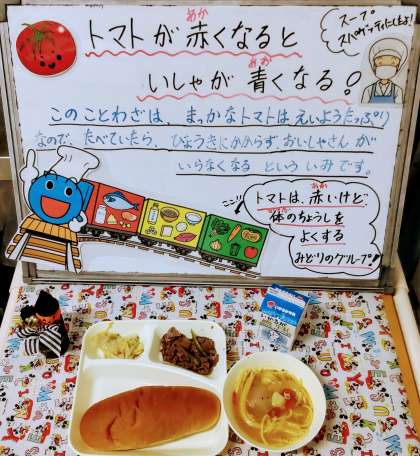 スープ
スパゲッティにしたよ!
トマトが 赤くなると
あか
いしゃが 青くなる!
あお
このことわざは、まっかなトマトはえいようたっぷり
なので、たべていたら、びょうきにかからず、おいしゃさんが
いらなくなる という いみです。
ここ!!
トマトは、赤いけど、
あか
体のちょうしを
からだ
よくする
みどりのグループ!